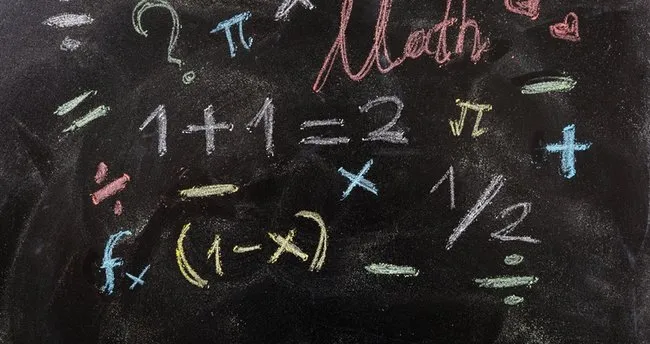 ÷ ? π × Math
= 1+1=2 √π − +
÷ − × 1/2
fx (1-x) − ÷